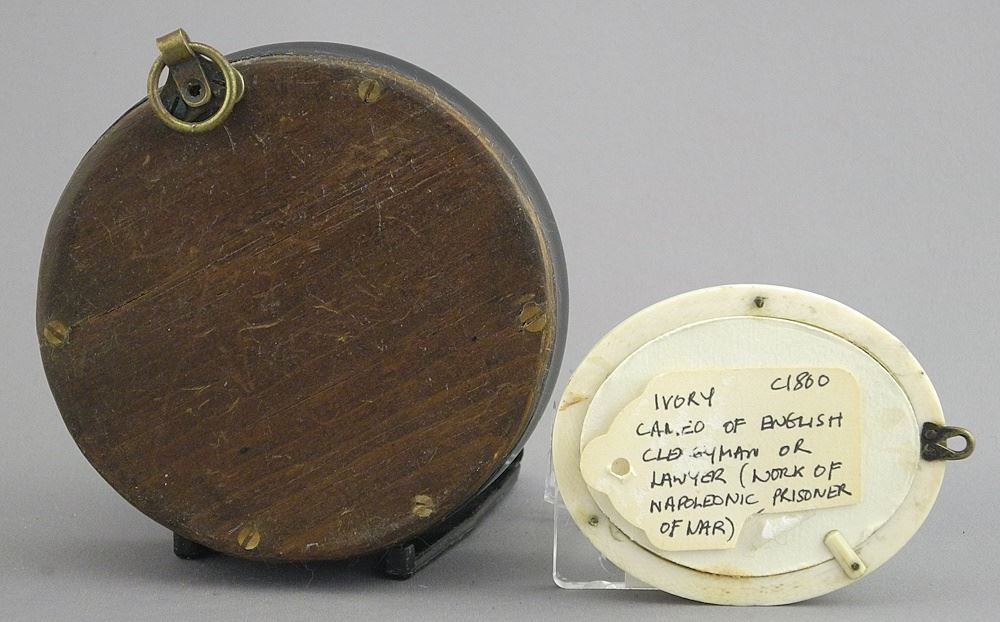 IVORY C1800
CAMEO OF ENGLISH
CLERGYMAN OR
LAWYER (WORK OF
NAPOLEONIC PRISONER
OF WAR)